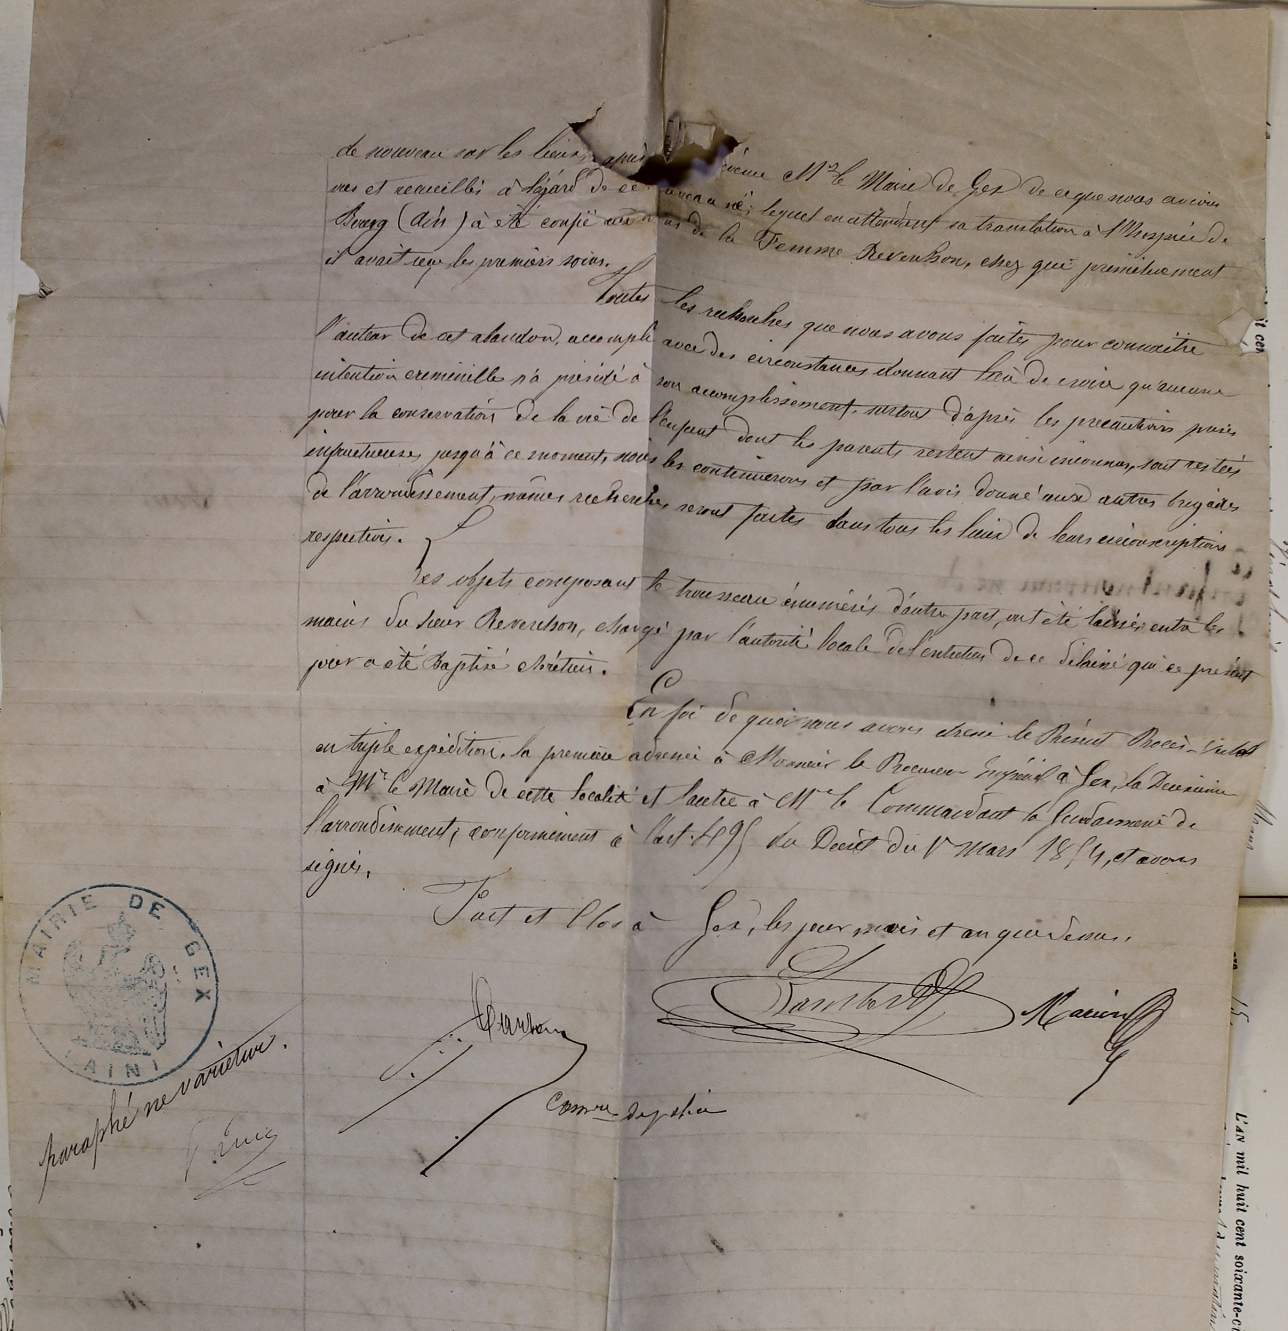 de nouveau sur les lieux, après M.r le Maire de Gex de ce que nous avions
vus et recueillis à l'égard de ce nouveau né; lequel en attendant sa translation à l'hospice de
Bourg (Ain) à été confié aux de la Femme Reverchon, chez qui primitivement
il avait reçu les premiers soins.
Toutes les recherches que nous avons faites pour connaître
l'auteur de cet abandon, accompli avec des circonstances donnant lieu de croire qu'aucune
intention criminelle n'a présidé à son accomplissement, surtout d'après les précautions prises
pour la conservation de la vie de l'enfant dont les parents restent ainsi inconnus, sont restées
infructueuses jusqu'à ce moment, nous les continuerons et par l'avis donné aux autres brigades
de l'arrondissement, mêmes recherches seront faites dans tous les lieux de leurs circonscriptions
respectives.
Les objets composant le trousseau énumérés d'autre part, ont été laissés entre les
mains du sieur Reverchon, chargé par l'autorité locale de l'entretien de ce délaissé qui ce présent
jour a été Baptisé chrétien.
En foi de quoi nous avons dressé le Présent Procès-Verbal
en triple expédition, la première adressée à Monsieur le Procureur Impérial à Gex, la Deuxième
à M.r le Maire de cette localité et l'autre à M.r le Commandant la Gendarmerie de
l'arrondissement, conformément à l'art. 495 du Décret du 1er Mars 1854, et avons
signé.
Fait et Clos à Gex, les jour, mois et an que dessus.
Lambert
Comre de police
MAIRIE DE GEX
(AIN)
paraphé ne varietur.
L'AN mil huit cent soixante-